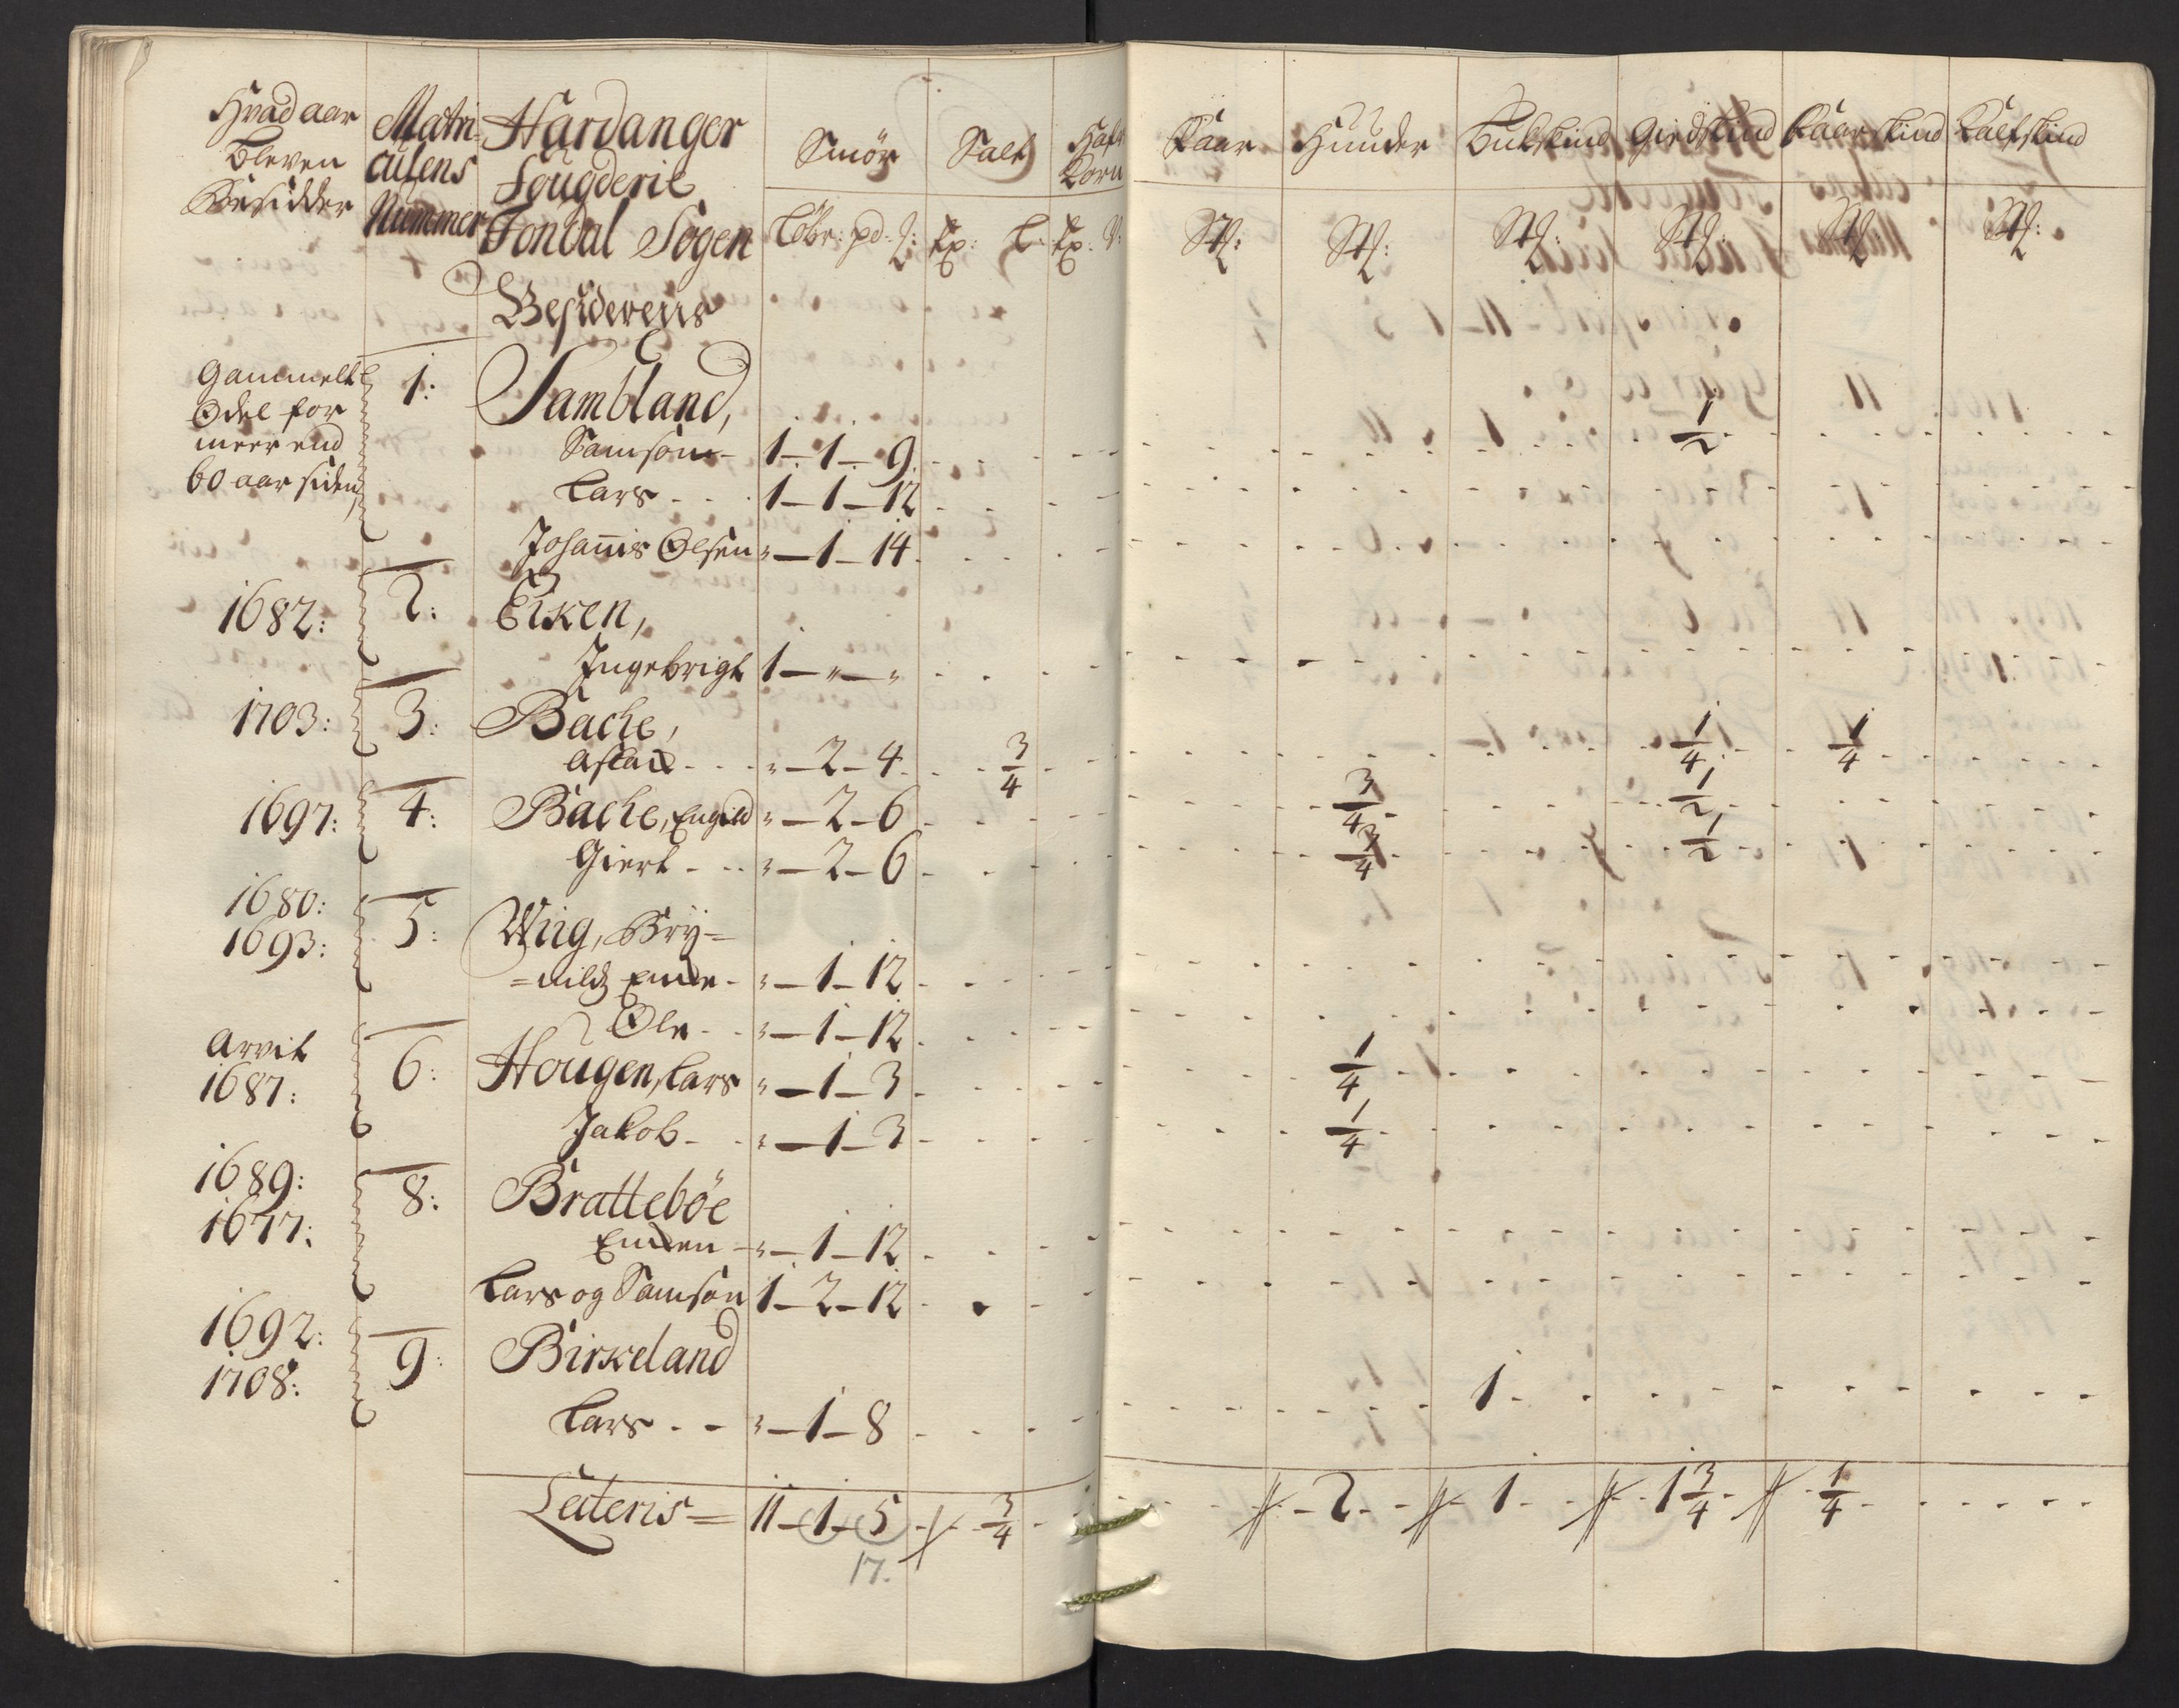 Hvad aar
bleven
Besidder
Matri-
culens
Nummer
Hardanger
Fougderie
Jondal Sogen
Besidderens
Smør
Salt
Hafr
Korn
Faar
Huuder
Bukskind
Giedskind
Faarskind
Kalfskind
Løbr: pd: Stk: Stk: Stk: Stk: Stk: Stk:
Gammelt
Odel for
meer end
60 aar siden
1: Sambland,
Samson - 1 - 1 - 9 1/2
Lars - - 1 - 1 - 12
Johannis Olsen " - 1 - 14
1682: 2: Eiken,
Ingebrigt 1 - " - "
1703: 3: Bache,
Aslad - - " - 2 - 4 3/4 1/4 1/4
1697: 4: Bache, Engild " - 2 - 6 3/4 1/2
Giert - - " - 2 - 6 3/4 1/2
1680:
1693: 5: Wiig, Bry=
=nild " - 1 - 12
Ole - - " - 1 - 12
Arvit
1687: 6: Hougen, Lars " - 1 - 3 1/4
Jakob - - " - 1 - 3 1/4
1689:
1677: 8: Brattebøe
" - 1 - 12
Lars og Samson 1 - 2 - 12
1692:
1708: 9: Birkeland
Lars - - " - 1 - 8 1
Lateris = 11 - 1 - 5 3/4 2 1 1 3/4 1/4
17.